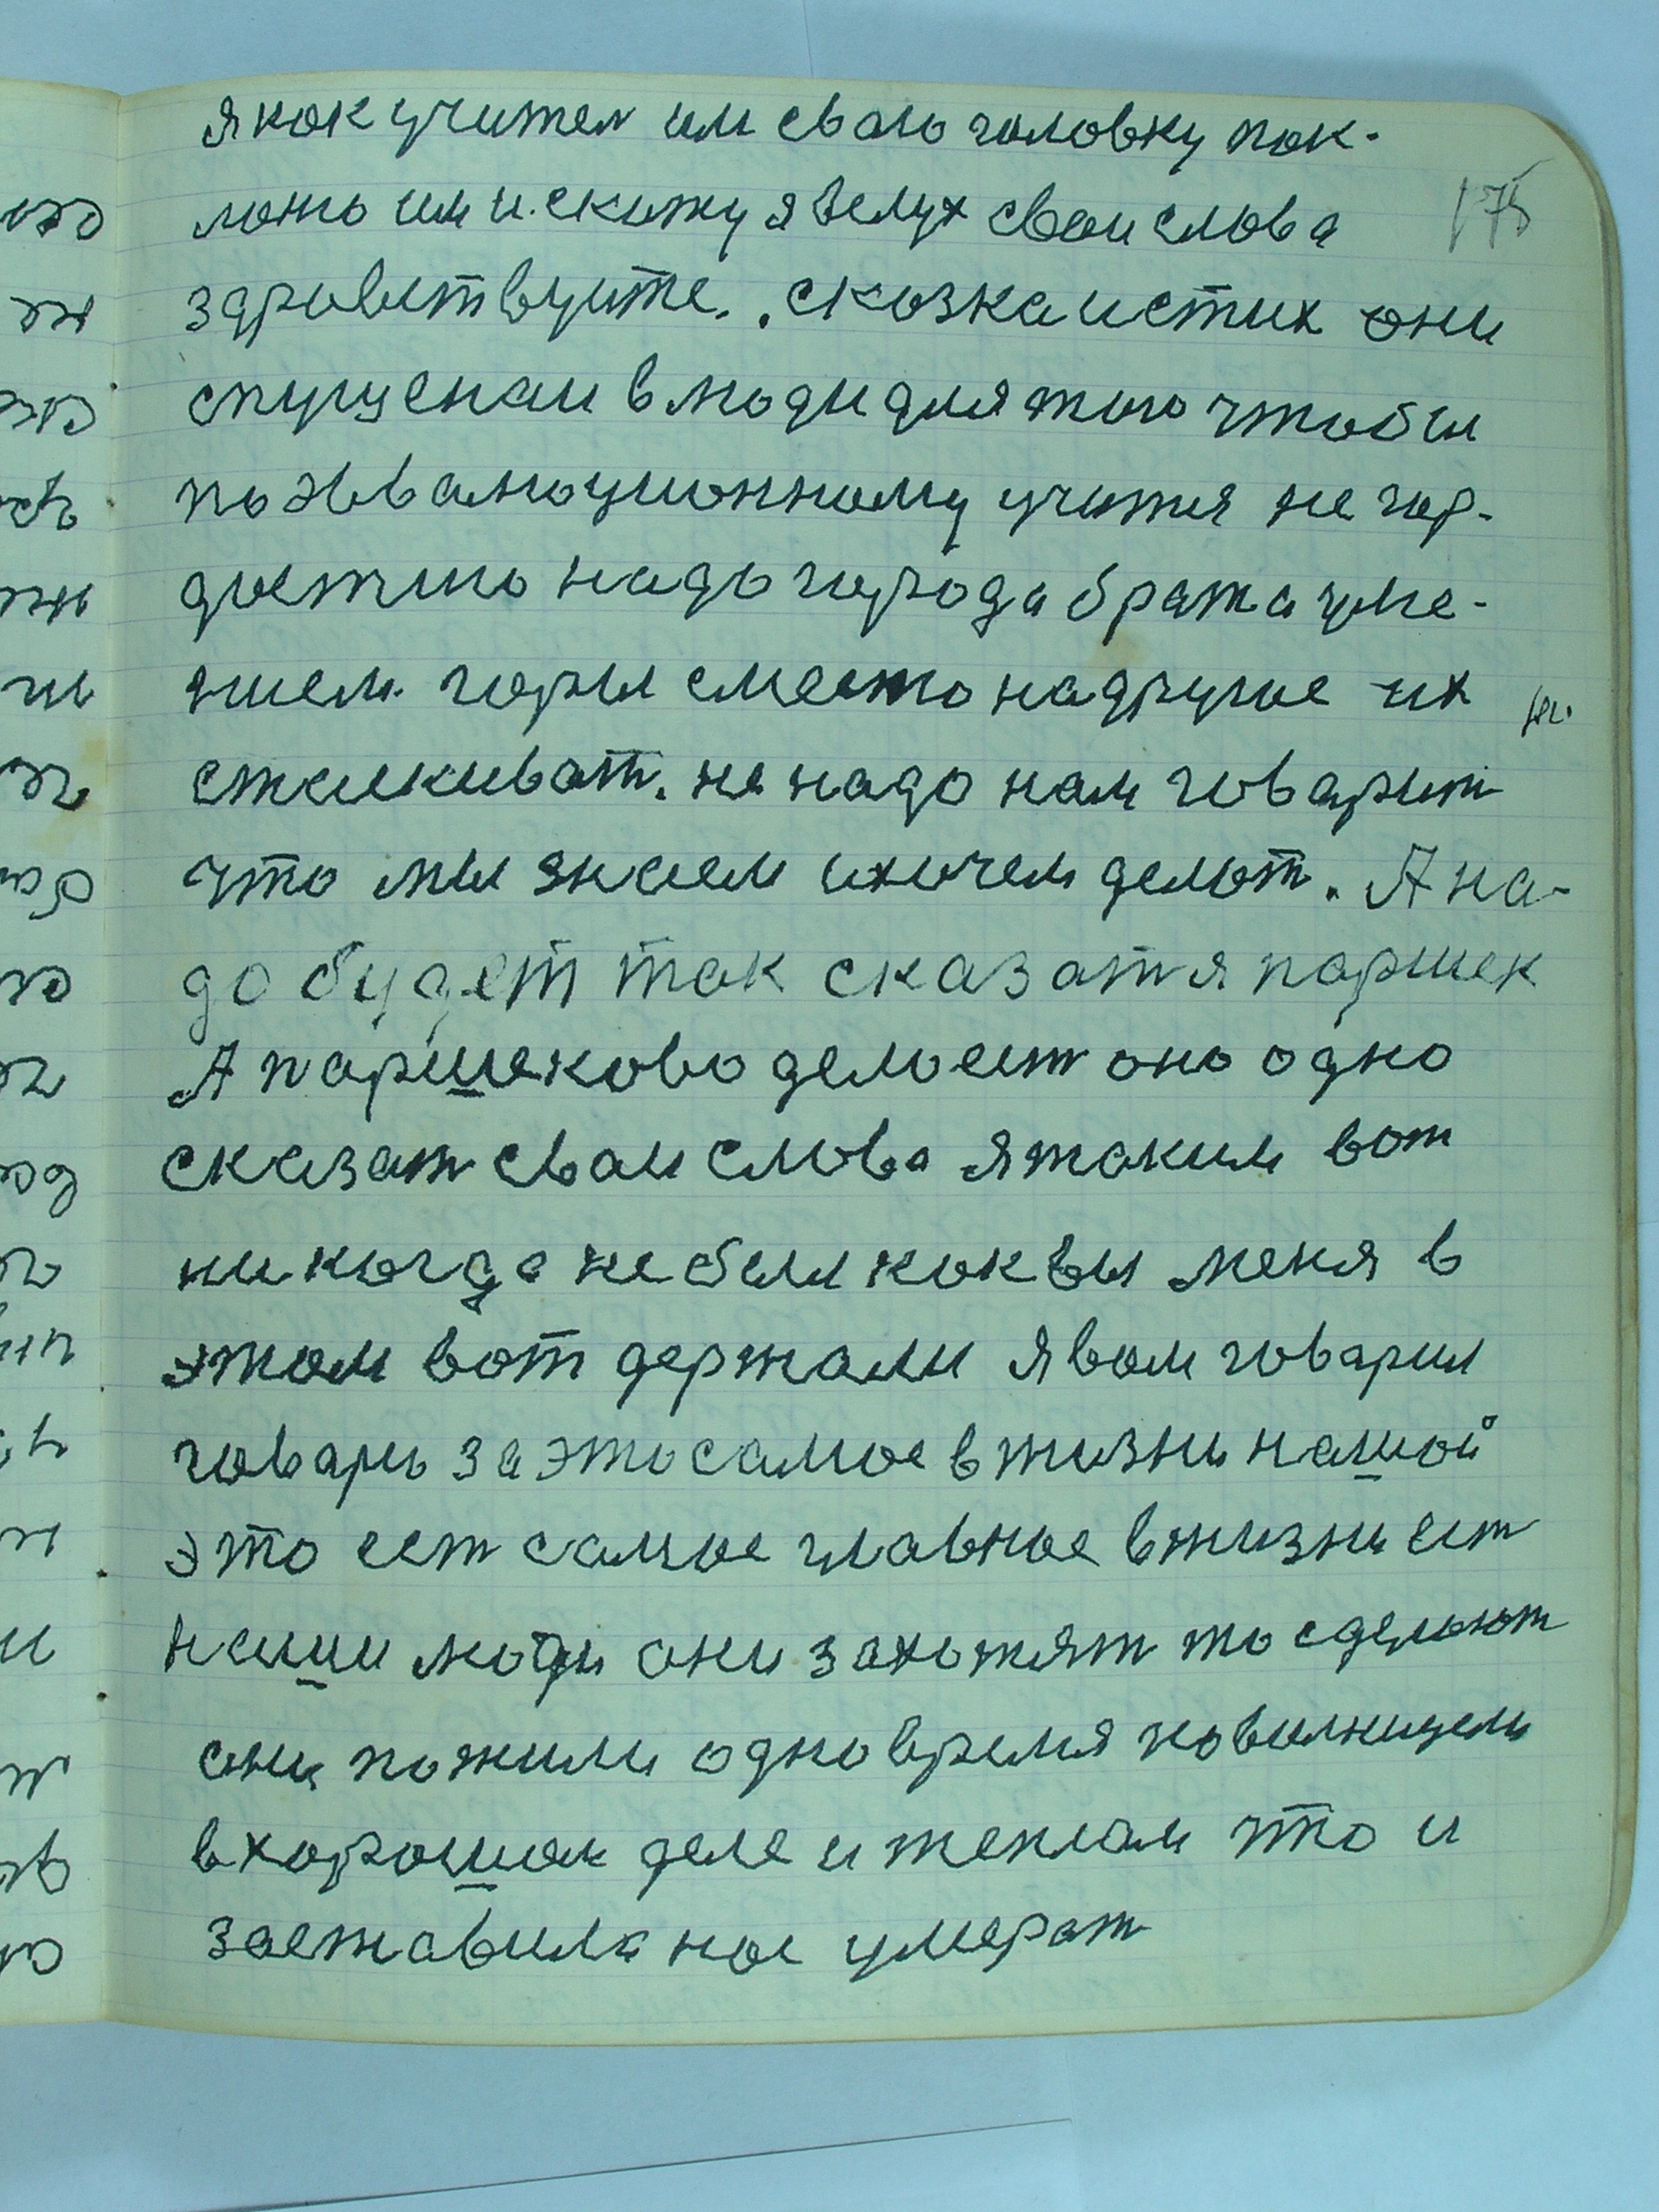 175
я как учител им сваю головку пок-
лоню им и скажу я велух сваи слова
здраветвуите. . сказка и стих они
спущенаи в люди для таго чтобы
по эвалюционному учится не гор-
достю надо города брат а уме-
нием. горы смело на другие их
сталкиват. не надо нам говарит
что мы знаем и хочем делат. А на-
до будет так сказат я паршек
А паршеково дело ест оно одно
сказат сваи слова я таким вот
никогда не был как вы меня в
этом вот держали я вам говарил
говарю за это самое в жизни нашой
это ест самое главное в жизни ест
наши люди они захотят то сделают
они пожили одно время
в хорошом деле и теплом что и
заставила нас умерат